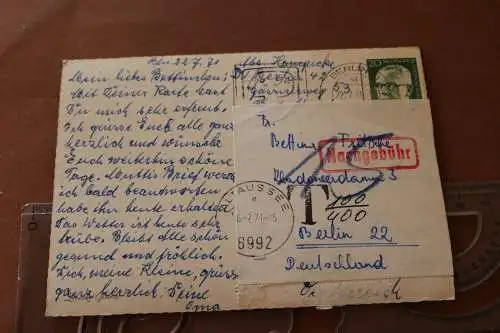 Bln 22.7.71
Mein liebes Bettinchen!
Mit Deiner Karte hast
Du mich sehr erfreut.
Ich grüsse Euch alle ganz
herzlich und wünsche
Euch weiterhin schöne
Tage. Muttis Brief werde
ich bald beantworten,
habe ihn heute erhalten
Das Wetter ist heute sehr
trübe. Bleibt alle schön
gesund und fröhlich.
Dich, meine Kleine, grüsst
ganz herzlich Deine
Oma
Berlin 42
BERLIN
20
Fr.
Bettina Fritsche
Nachgebühr
3
T 100/400
ALTAUSSEE
-6.-7.71-15
8992
Berlin 22
Deutschland